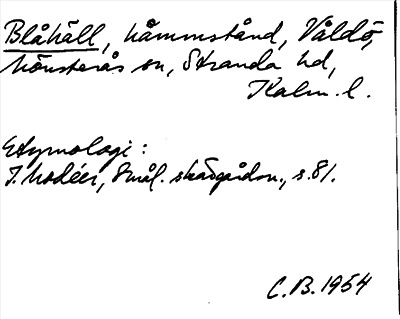 Blåhäll, håmmstånd, Våldö,
Mönsterås sn, Stranda hd,
Kalm. l.
Etymologi:
I. Modéer, Smål. skärgårdsn., s. 81.
C.B. 1954